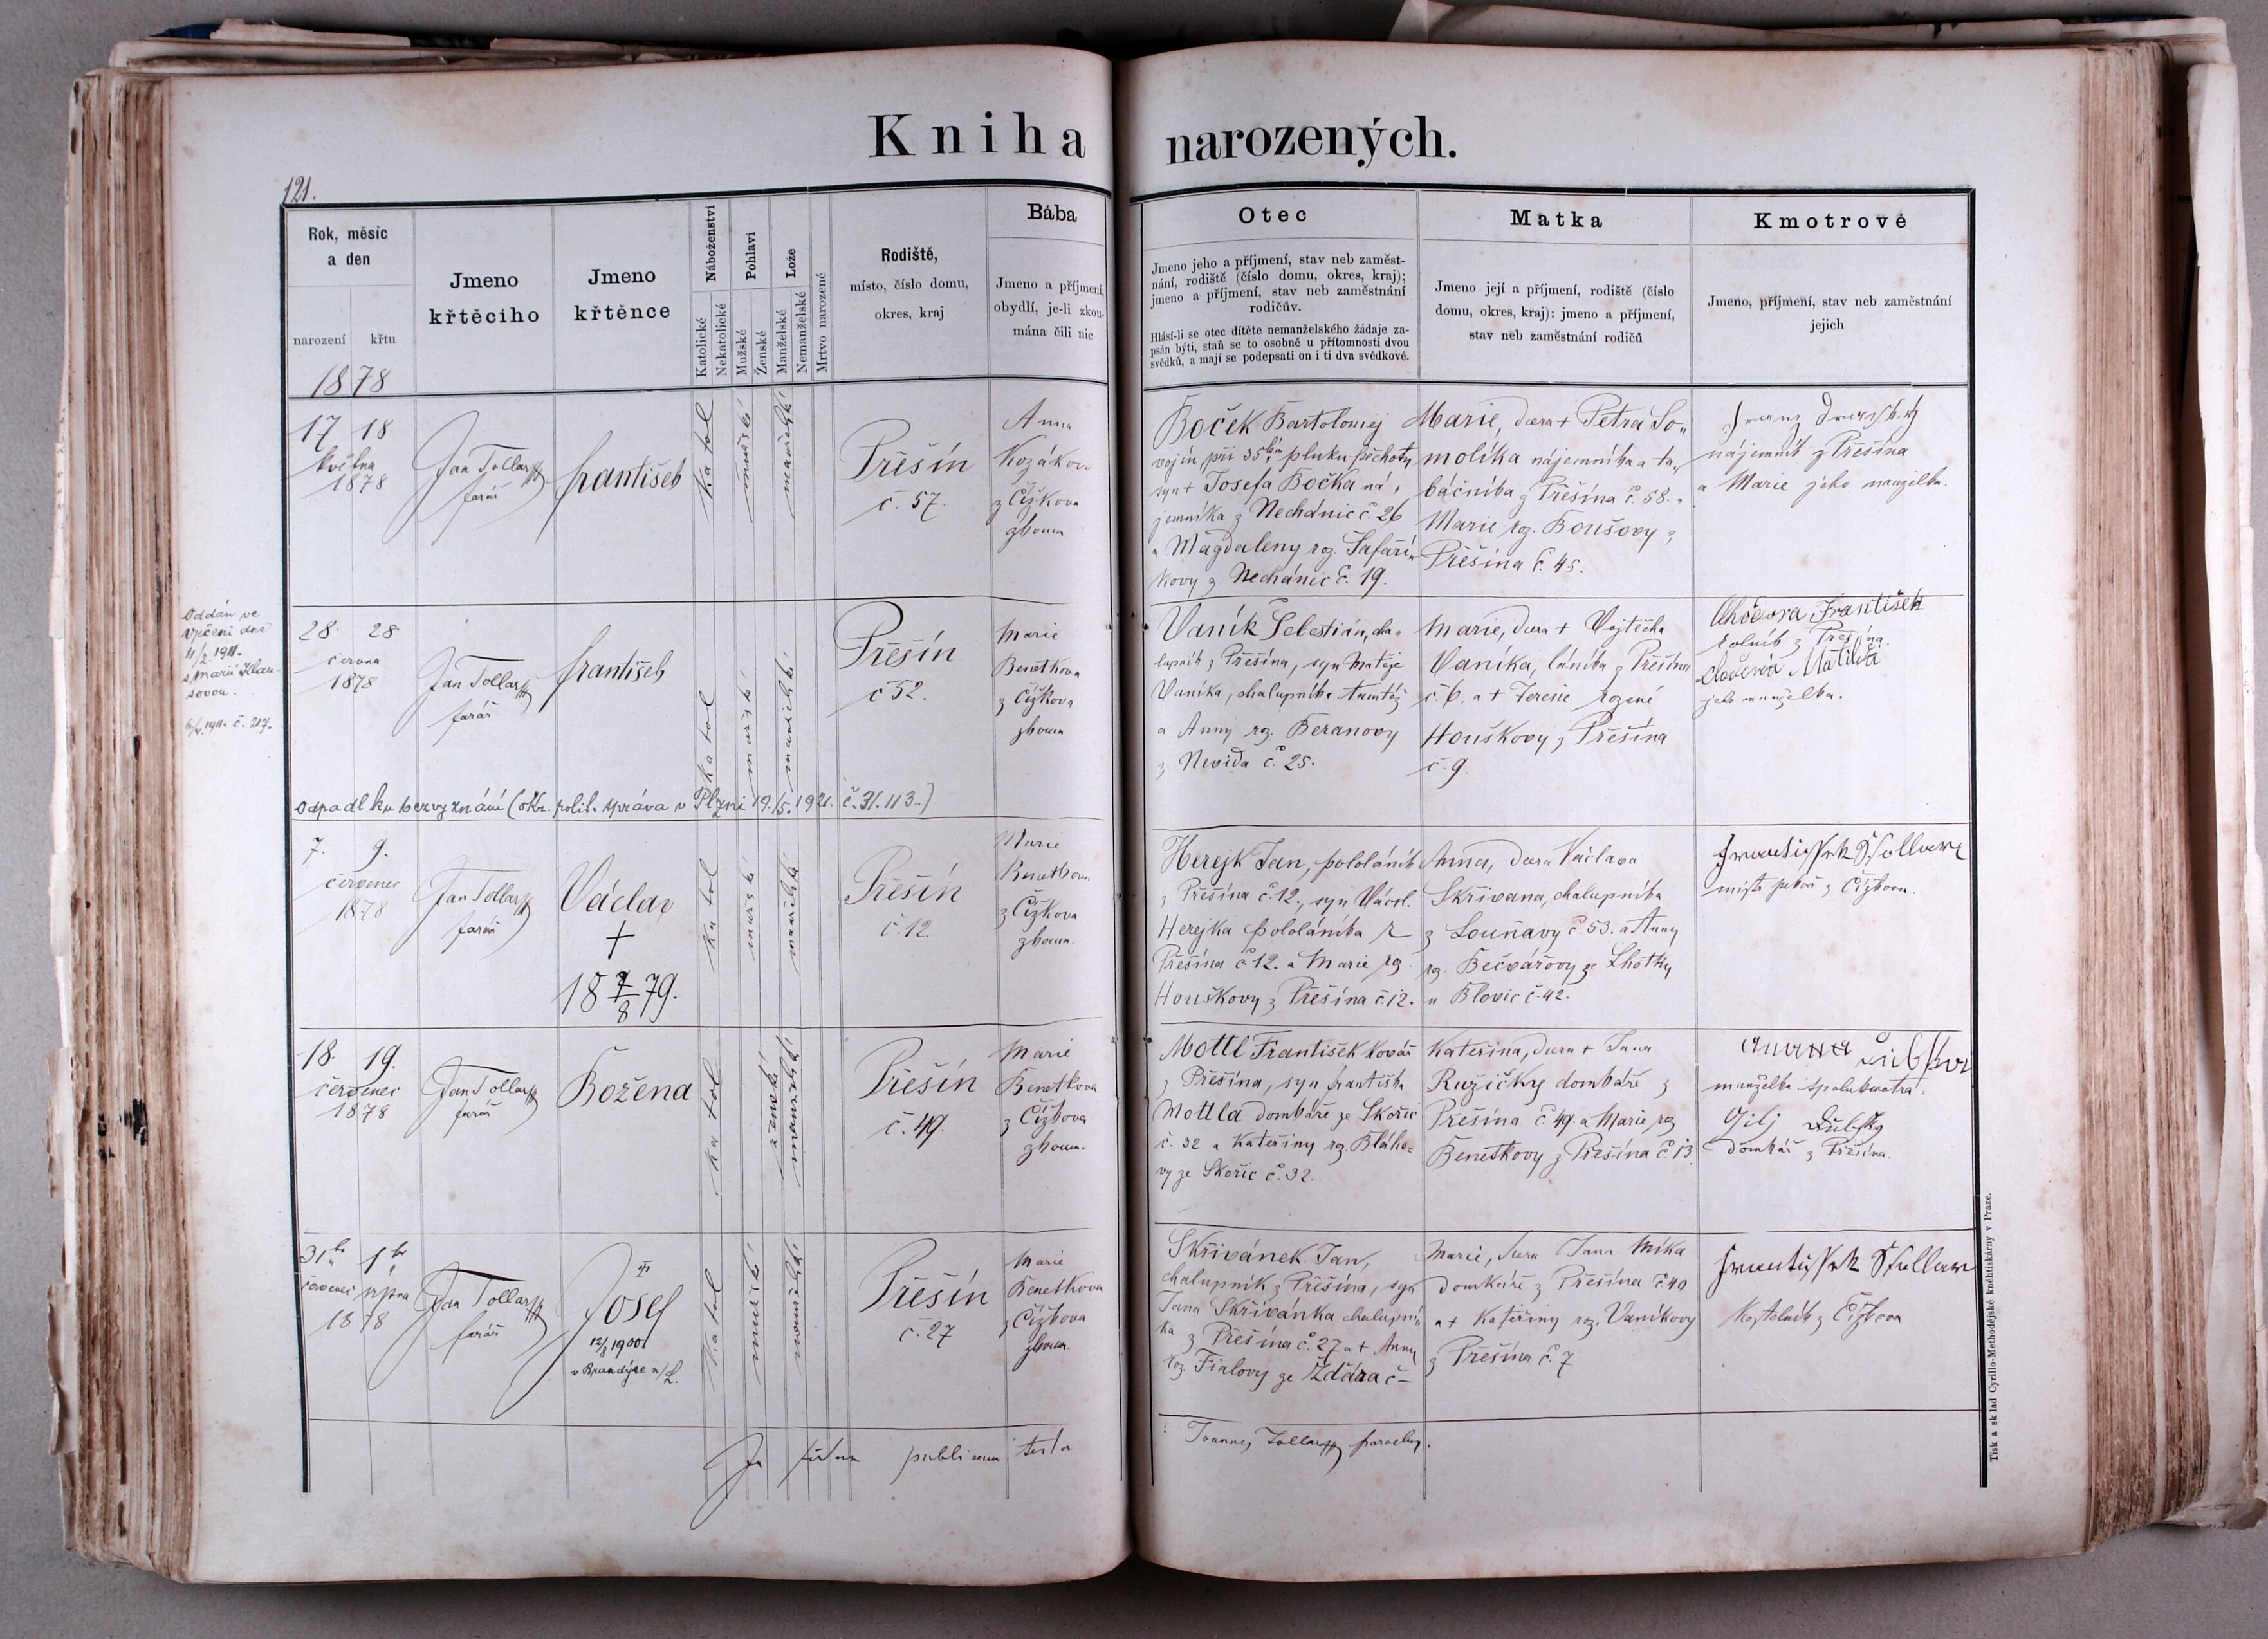 Kniha narozených.
121.
Rok, měsíc
a den
narození
křtu
1878
Jmeno
křtěcího
Jmeno
křtěnce
Náboženství
Katolické
Nekatolické
Pohlaví
Mužské
Ženské
Lože
Manželské
Nemanželské
Mrtvo narozené
Rodiště,
místo, číslo domu,
okres, kraj
Bába
Jmeno a příjmení,
obydlí, je-li zkou-
mána čili nic
Otec
Jmeno jeho a příjmení, stav neb zaměst-
nání, rodiště (číslo domu, okres, kraj);
jmeno a příjmení, stav neb zaměstnání
rodičův.
Hlásí-li se otec dítěte nemanželského žádaje za-
psán býti, staň se to osobně u přítomnosti dvou
svědků, a mají se podepsati on i ti dva svědkové.
Matka
Jmeno její a příjmení, rodiště (číslo
domu, okres, kraj): jmeno a příjmení,
stav neb zaměstnání rodičů
Kmotrové
Jmeno, příjmení, stav neb zaměstnání
jejich
17 18
května
1878
Jan Tollar
farář
František
katol
mužské
manželské
Přešín
č. 57.
Anna
Kozákova
z Čížkova
zkoum
Boček Bartoloměj
vojín při 35. pluku pěchoty
syn + Josefa Bočka ná-
jemníka z Nechánic č. 26
a Magdaleny roz. Šafaří-
kovy z Nechánic č. 19.
Marie, dcera + Petra So-
molíka nájemníka a ta-
báčníka z Přešína č. 58. a
Marie roz. Boušovy z
Přešína č. 45.
nájemník z Přešína
a Marie jeho manželka.
Oddán ve
dne
11/2 1911.
s Marií
sovou.
1911. č. 217.
28. 28
června
1878
Jan Tollar
farář
František
katol
mužské
manželské
Přešín
č 52.
Marie
Benetkova
z Čížkova
zkoum
Vaník Šebestián, cha-
lupník z Přešína, syn Matěje
Vaníka, chalupníka tamtéž
a Anny roz. Beranovy
z Nevida č. 25.
Marie, dcera + Vojtěcha
Vaníka, láníka z Přešína
č. 6. a + Terezie rozené
Houškovy z Přešína
č. 9.
František
rolník z Přešína.
Matilda
jeho manželka.
Odpadl ku bezvyznání (okr. polit. správa v Plzni 19./5. 1921. č. 31.113.)
7. 9.
červenec
1878
Jan Tollar
farář
Václav
+
18 7/8 79.
katol
mužské
manželské
Přešín
č. 12.
Marie
Benetkova
z Čížkova
zkoum.
Herejk Jan, pololáník
z Přešína č. 12., syn Václ.
Herejka pololáníka z
Přešína č 12. a Marie roz.
Houškovy z Přešína č. 12.
Anna, dcera Václava
Skřivana, chalupníka
z Louňavy č. 53. a Anny
roz. Bečvářovy ze Lhotky
u Blovic č. 42.
z Čížkova.
18. 19.
červenec
1878
Jan Tollar
farář
Božena
katol
ženské
manželské
Přešín
č. 49.
Marie
Benetkova
z Čížkova
zkoum.
Mottl František kovář
z Přešína, syn Františka
Mottla domkáře ze Skořic
č. 32 a Kateřiny roz. Bláho-
vy ze Skořic č. 32.
Kateřina, dcera + Jana
Ružičky domkáře z
Přešína č. 49. a Marie roz
Benetkovy z Přešína č. 13.
Anna
manželka spolukmotra.
domkář z Přešína.
31ho 1ho
červenec srpna
1878
Jan Tollar
farář
Josef
12/8 1900
v Brandýse n/L.
katol
mužské
manželské
Přešín
č. 27
Marie
Benetkova
z Čížkova
zkoum.
Skřivánek Jan,
chalupník z Přešína, syn
Jana Skřivánka chalupní-
ka z Přešína č. 27 a + Anny
roz. Fialovy ze Ždára č –
Marie, dcera Jana Míka
domkáře z Přešína č 40
a + Kateřiny roz. Vaníkovy
z Přešína č. 7
Kostelník z Čížkova
In fidem publicam testor
Joannes Tollar parochus.
Tisk a sklad Cyrillo-Methodějské knihtiskárny v Praze.